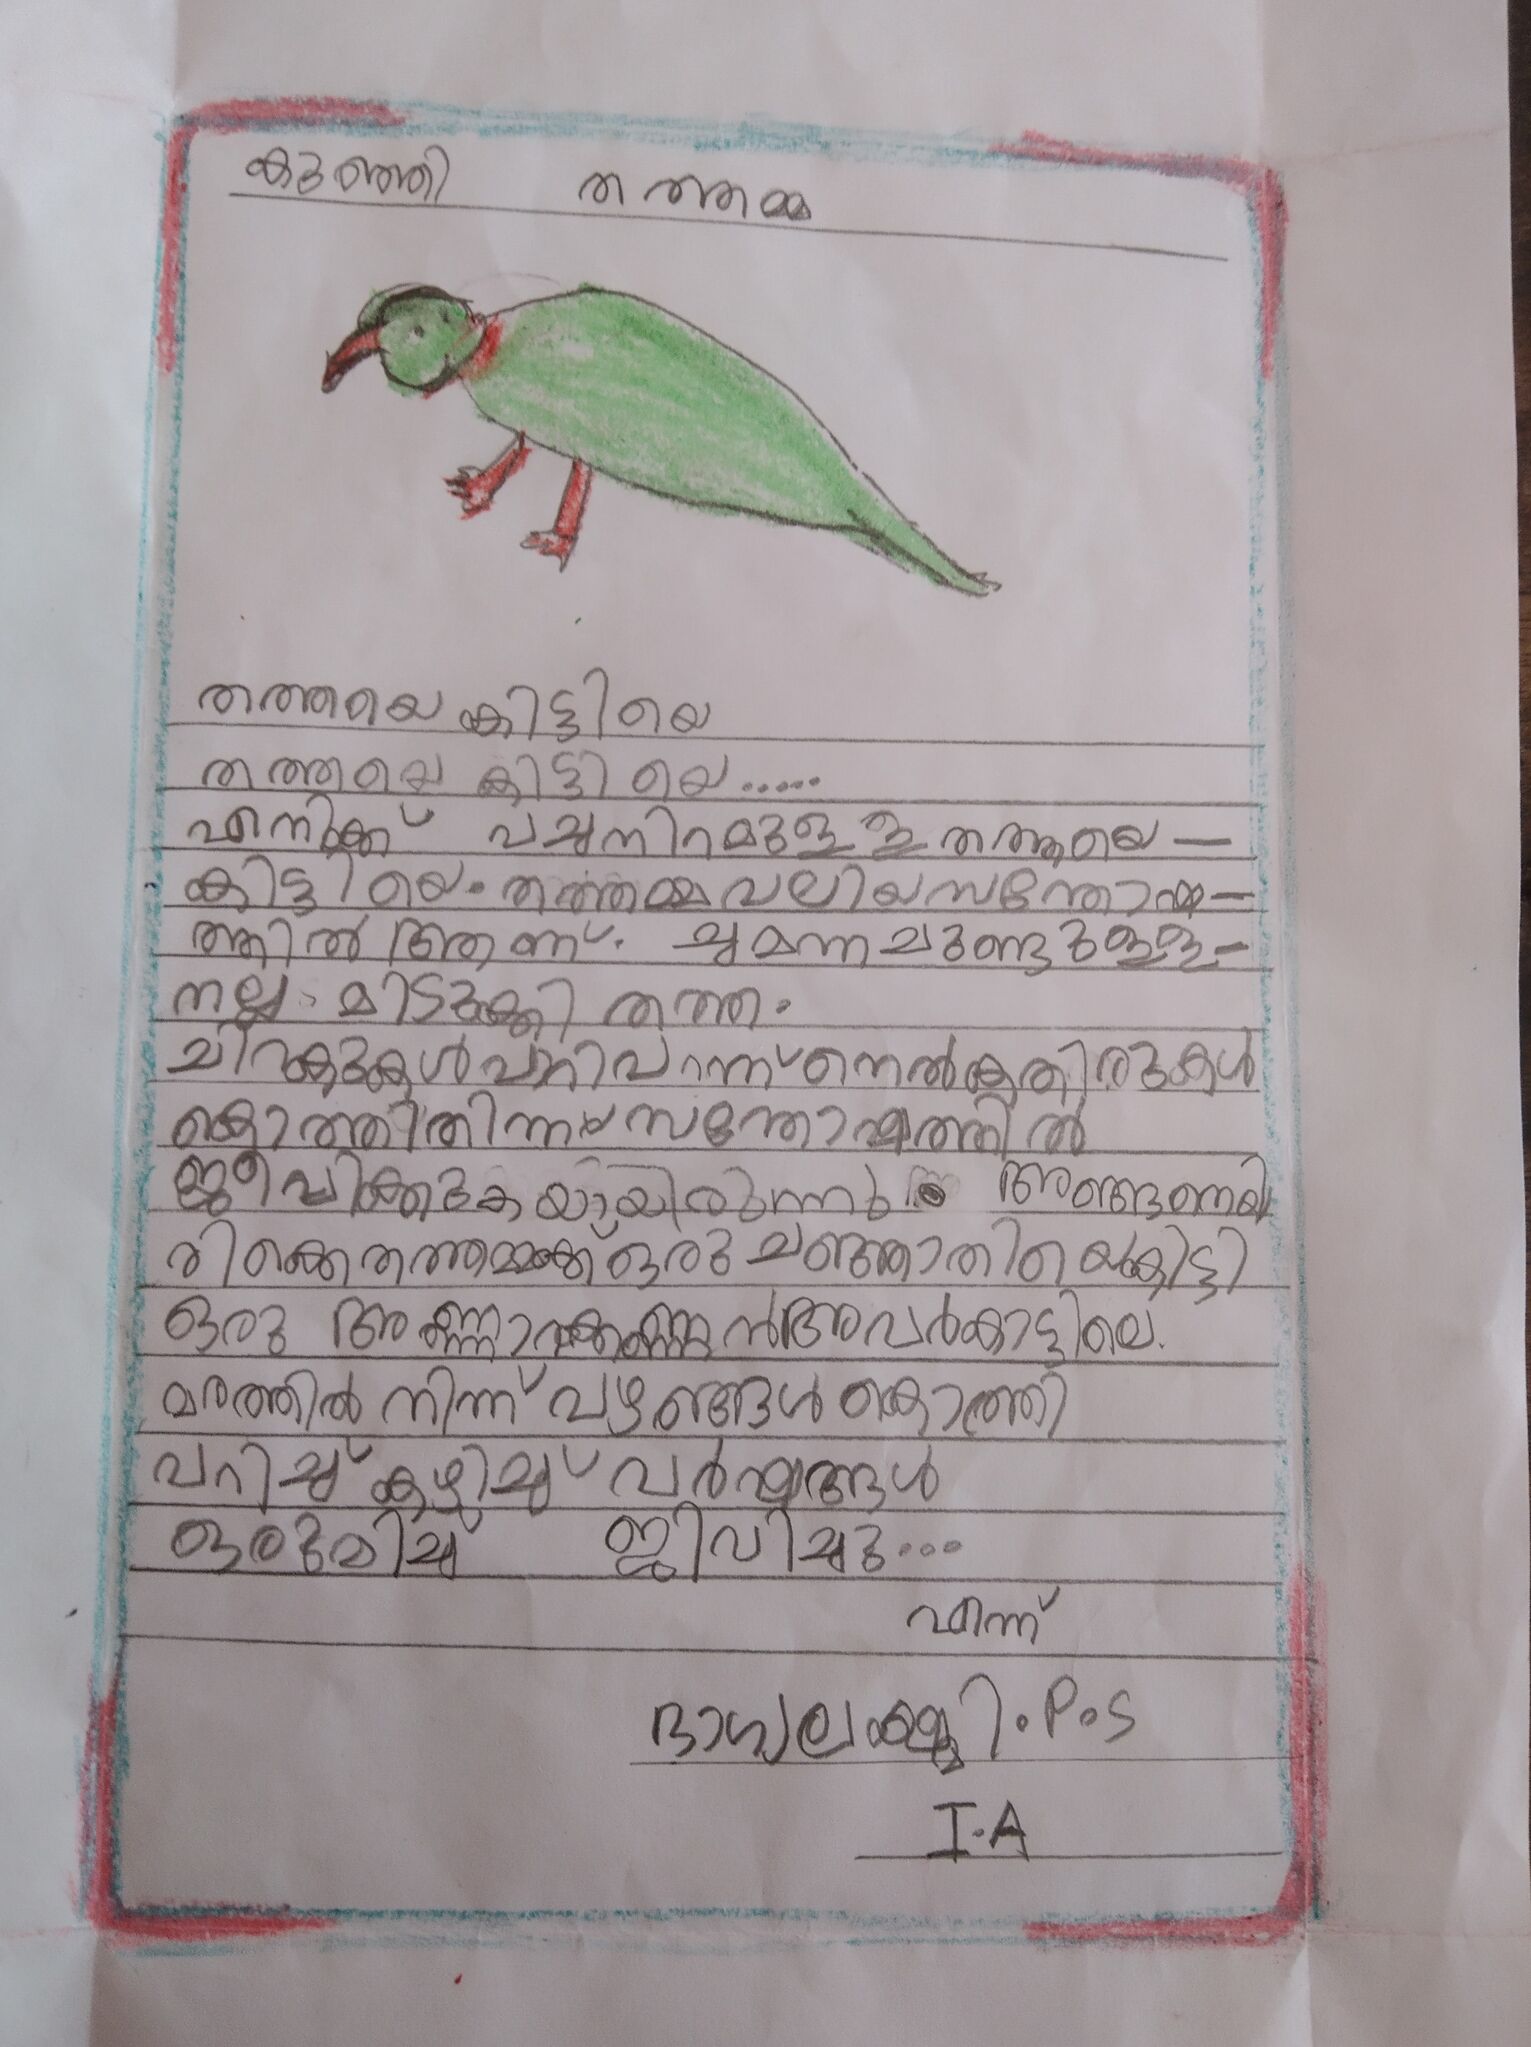 കുഞ്ഞി തത്തമ്മ
തത്തയെ കിട്ടിയെ
തത്തയെ കിട്ടിയെ.....
എനിക്ക് പച്ചനിറമുള്ള തത്തയെ—
കിട്ടിയെ. തത്തമ്മ വലിയ സന്തോഷ—
ത്തിൽ ആണ്. ചുമന്ന ചുണ്ടുള്ള—
നല്ല മിടുക്കി തത്ത.
ചിറകുകൾ പാറിപറന്ന് നെൽകതിരുകൾ
കൊത്തി തിന്ന് സന്തോഷത്തിൽ
ജീവിക്കുകയായിരുന്നു അങ്ങനെയി
രിക്കെ തത്തമ്മക്ക് ഒരു ചങ്ങാതിയെ കിട്ടി
ഒരു അണ്ണാറക്കണ്ണൻ അവർ കാട്ടിലെ.
മരത്തിൽ നിന്ന് പഴങ്ങൾ കൊത്തി
പറിച്ച് കഴിച്ച് വർഷങ്ങൾ
ഒരുമിച്ച് ജീവിച്ചു...
എന്ന്
ഭാഗ്യലക്ഷ്മി.P.S
I.A